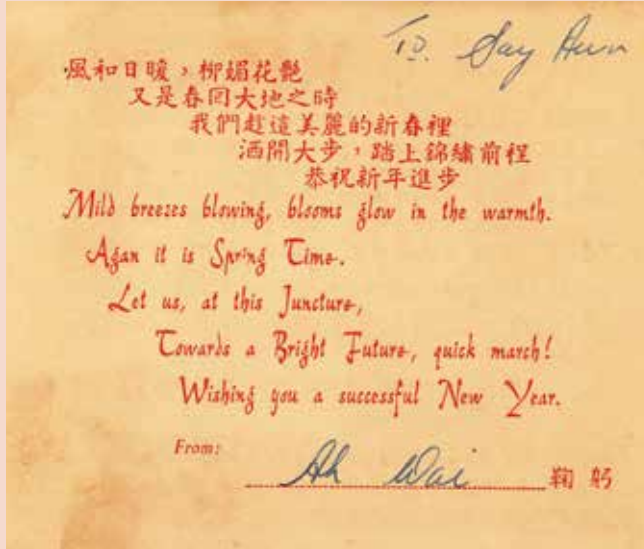 To. Say Aun
風和日暖，柳媚花艷
又是春囘大地之時
我們趁這美麗的新春裡
洒開大步，踏上錦繡前程
恭祝新年進步
Mild breezes blowing, blooms glow in the warmth.
Agan it is Spring Time.
Let us, at this Juncture,
Towards a Bright Future, quick march!
Wishing you a successful New Year.
From: Ah Wai 鞠 躬